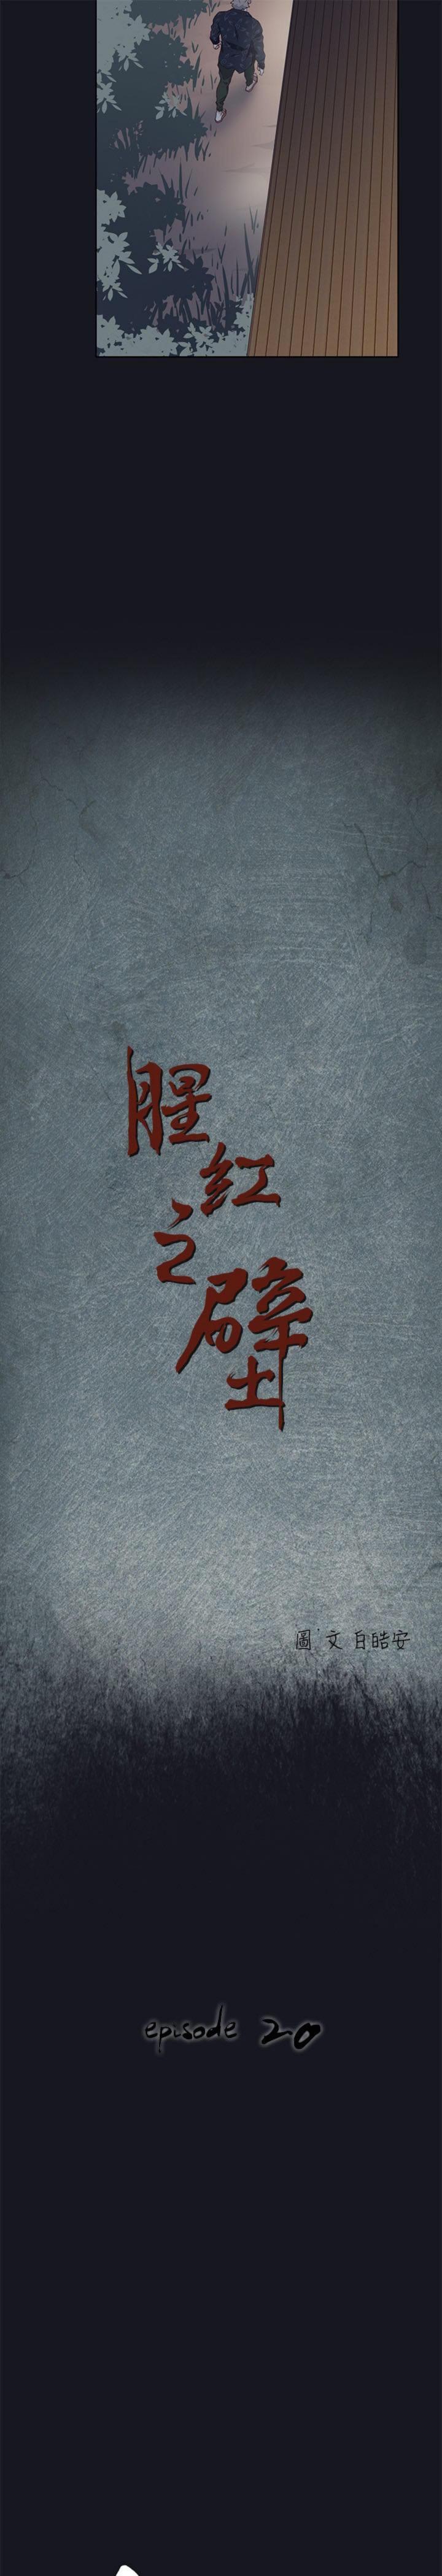 腥紅之壁
圖˙文 白皓安
episode 20